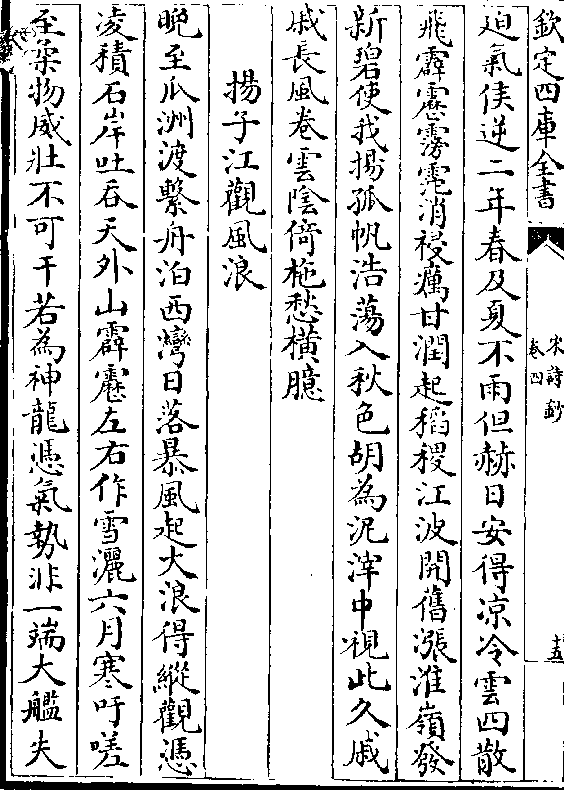 欽定四庫全書
宋詩鈔
卷四
十五
迫氣侯逆二年春及夏不雨但赫日安得凉冷雲四散
飛霹靂霧霓消祲癘甘潤起稻稷江波開舊漲淮嶺發
新碧使我揚孤帆浩蕩入秋色胡為泥滓中視此久戚
戚長風卷雲陰倚柂愁橫臆
揚子江觀風浪
晩至瓜洲渡繫舟泊西灣日落暴風起大浪得縱觀憑
凌積石岸吐吞天外山霹靂左右作雪灑六月寒吁嗟
至柔物威壯不可干若為神龍憑氣勢非一端大艦失